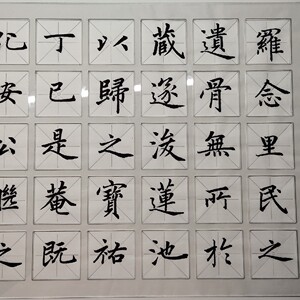 羅念里民之
遺骨無所於
藏遂浚蓮池
以歸之寶祐
丁已是菴既
安公之